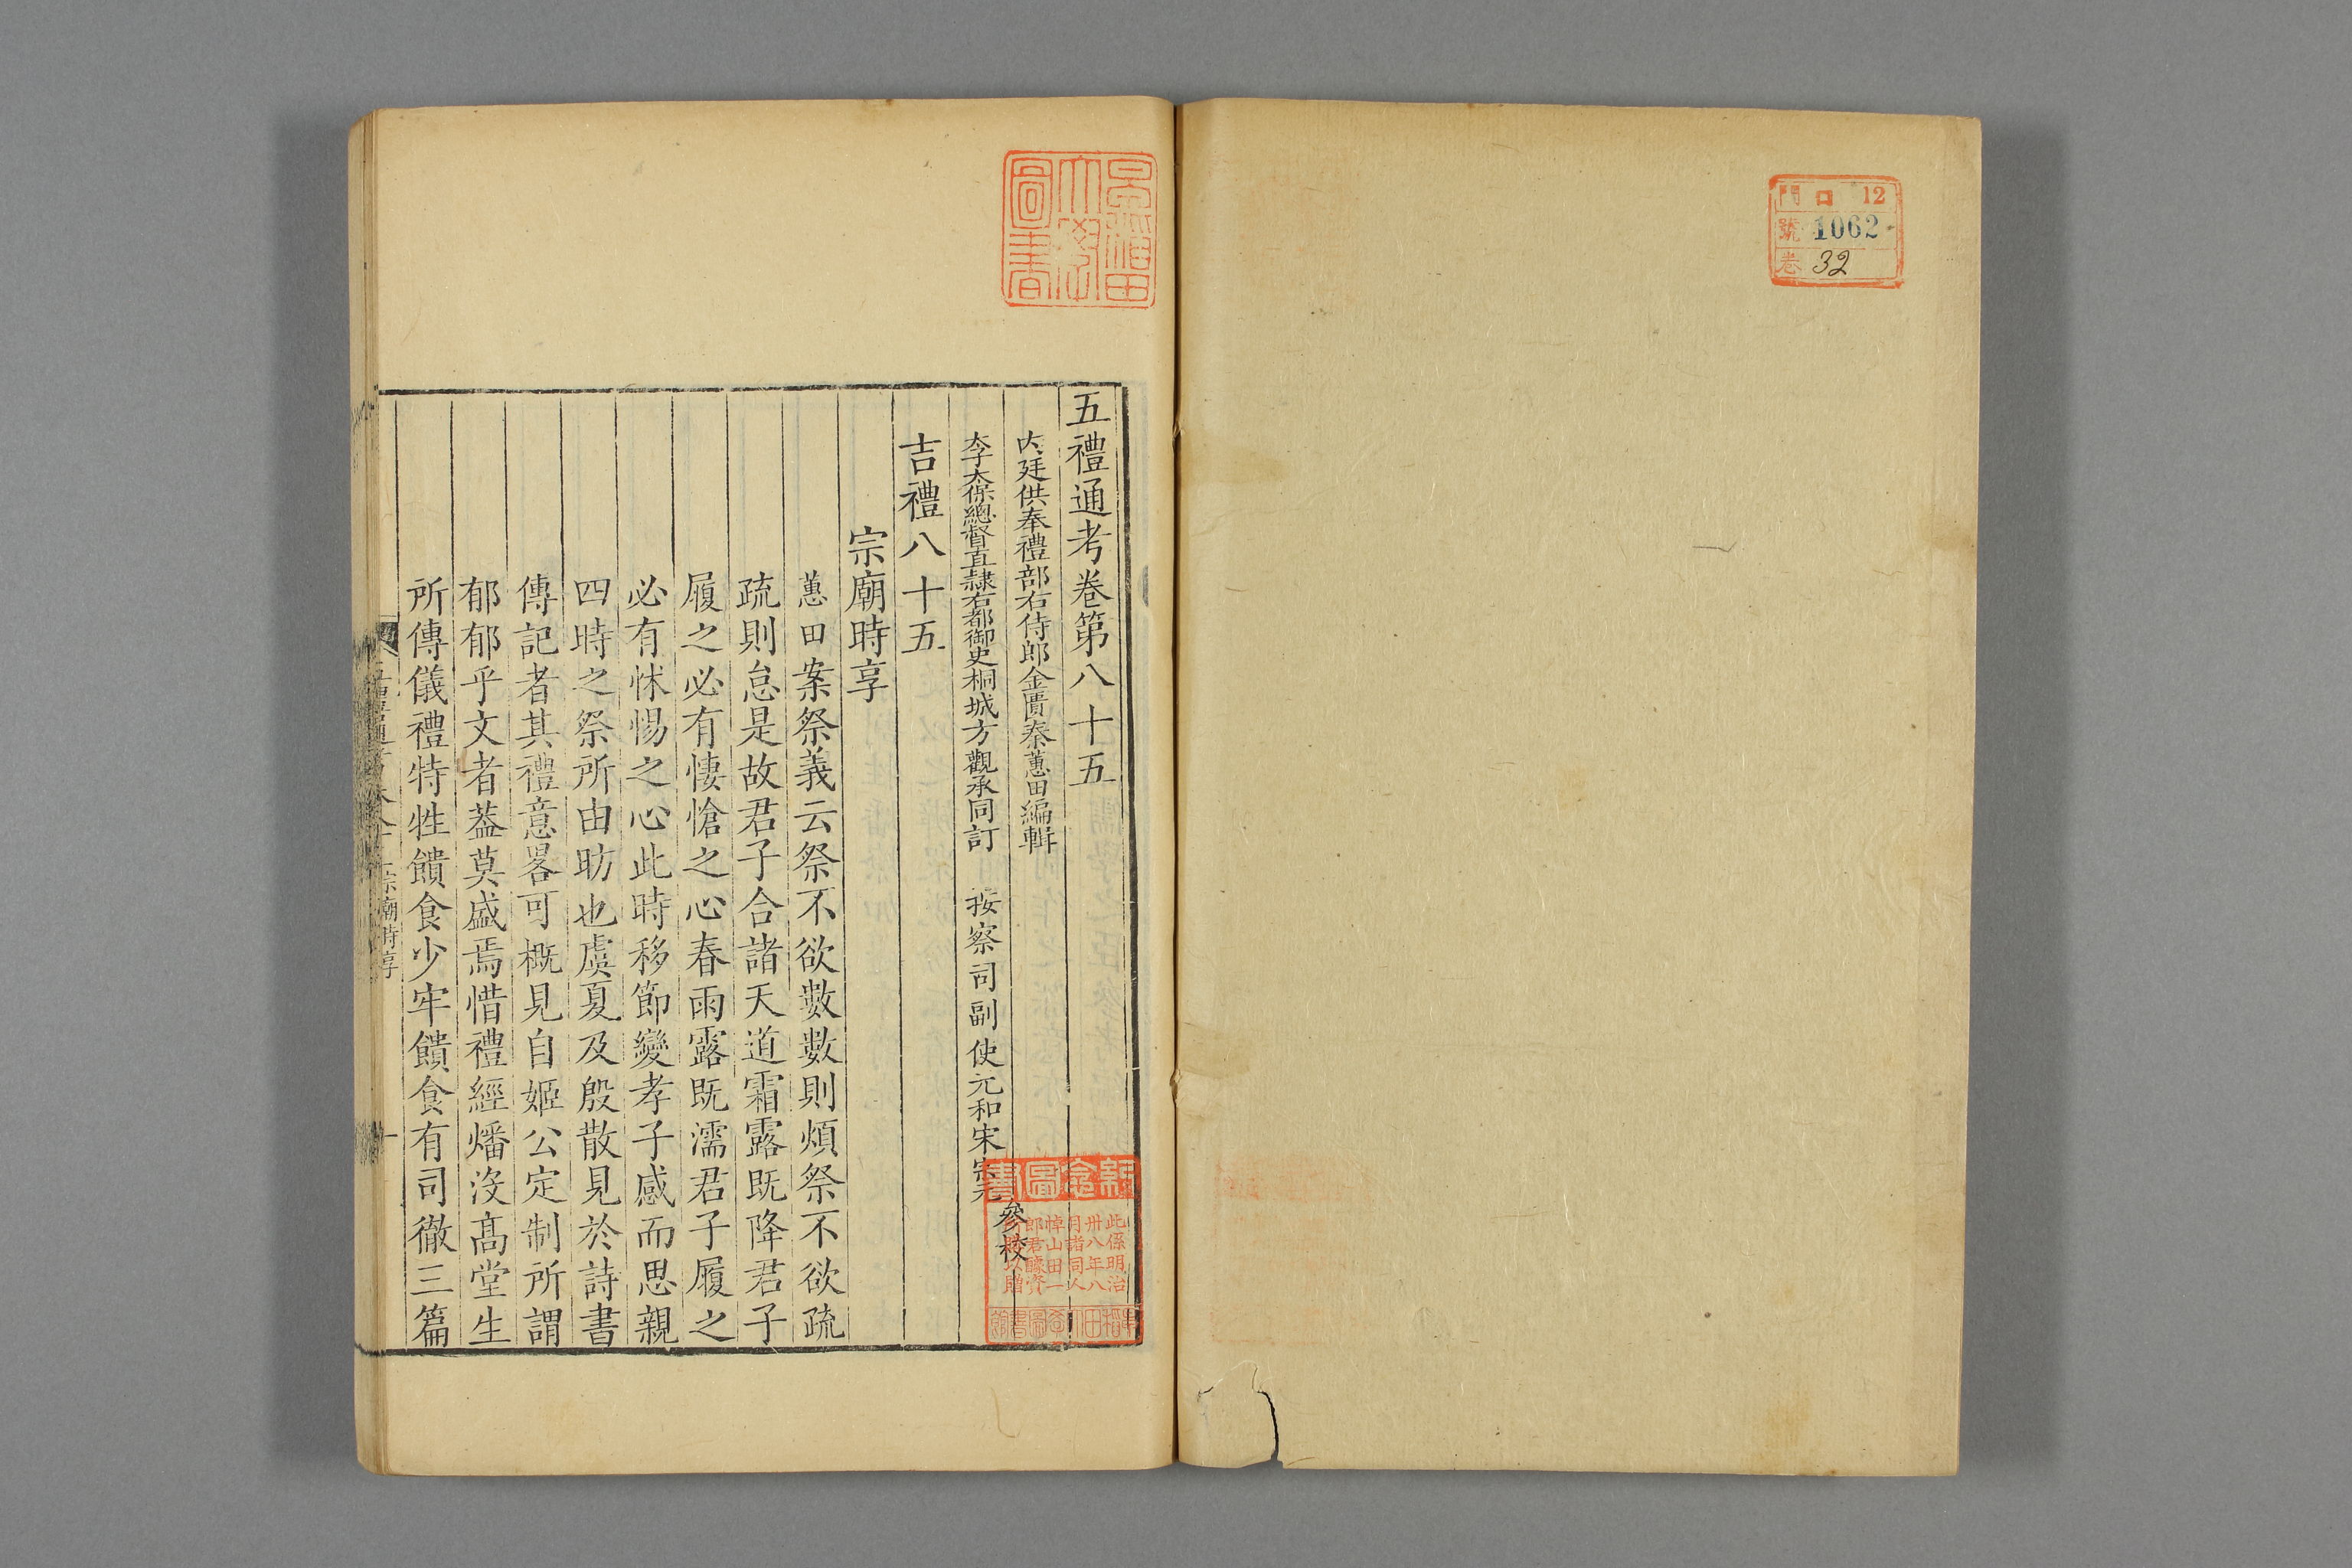 門 ロ 12
號 1062
卷 32
早稲田
大學
圖書
五禮通考卷第八十五
内廷供奉禮部右侍郎金匱秦蕙田編輯
太子太保總督直隸右都御史桐城方觀承同訂 按察司副使元和宋宗元參校
吉禮八十五
宗廟時享
蕙田案祭義云祭不欲數數則煩祭不欲疏
疏則怠是故君子合諸天道霜露既降君子
履之必有悽愴之心春雨露既濡君子履之
必有怵惕之心此時移節變孝子感而思親
四時之祭所由昉也虞夏及殷散見於詩書
傳記者其禮意畧可概見自姬公定制所謂
郁郁乎文者葢莫盛焉惜禮經燔沒髙堂生
所傳儀禮特牲饋食少牢饋食有司徹三篇
宗廟時享
一
念圖書
此係明治
卅八年八
月諸同人
悼山田一
郎君醵資
以贈